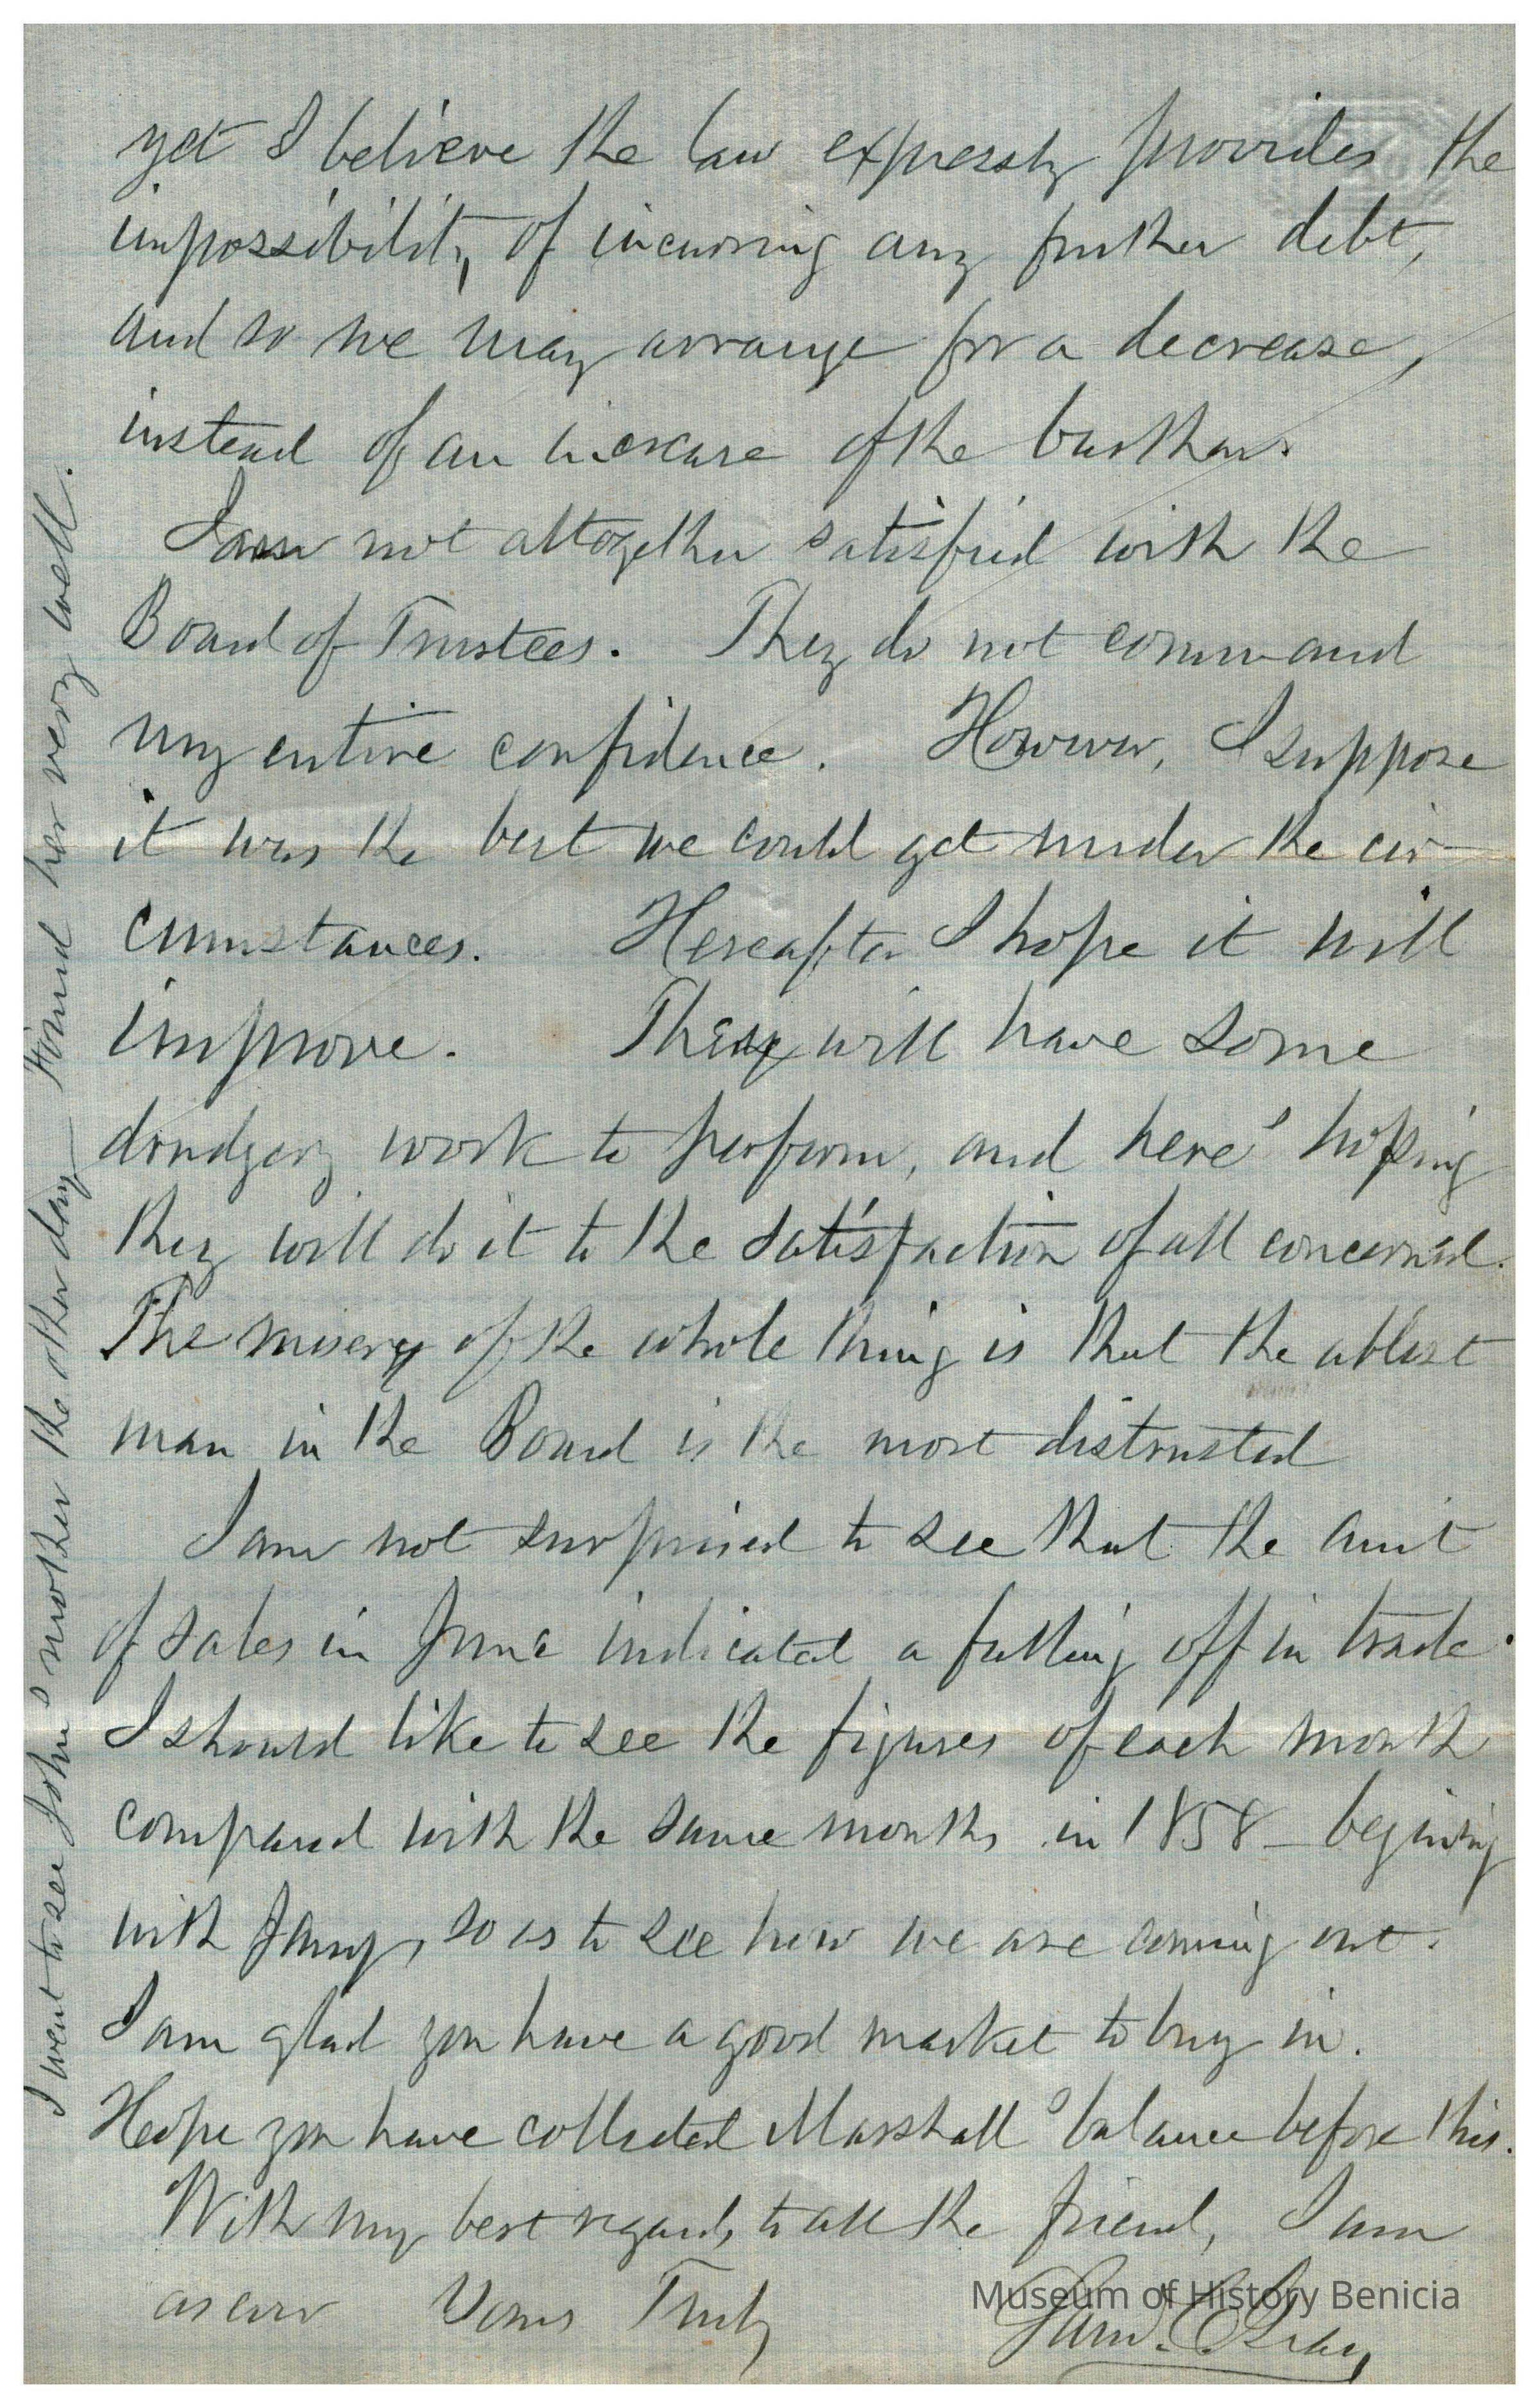 yet I believe the law expressly provides the
impossibility of incurring any further debt,
and so we may arrange for a decrease,
instead of an increase of the burthen.
I am not altogether satisfied with the
Board of Trustees. They do not command
my entire confidence. However, I suppose
it was the best we could get under the cir-
cumstances. Hereafter I hope it will
improve. They will have some
drudgery work to perform, and here's hoping
they will do it to the satisfaction of all concerned.
The misery of the whole thing is that the ablest
man in the Board is the most distrusted
I am not surprised to see that the amt
of sales in June indicated a falling off in trade.
I should like to see the figures of each month
compared with the same months in 1858 – begining
with Jany, so as to see how we are coming out.
I am glad you have a good market to buy in.
Hope you have collected Marshall's balance before this.
With my best regards to all the friends, I am
as ever Yours Truly
Saml. C. Gray
I went to see John's mother the other day – Found her very well.
Museum of History Benicia